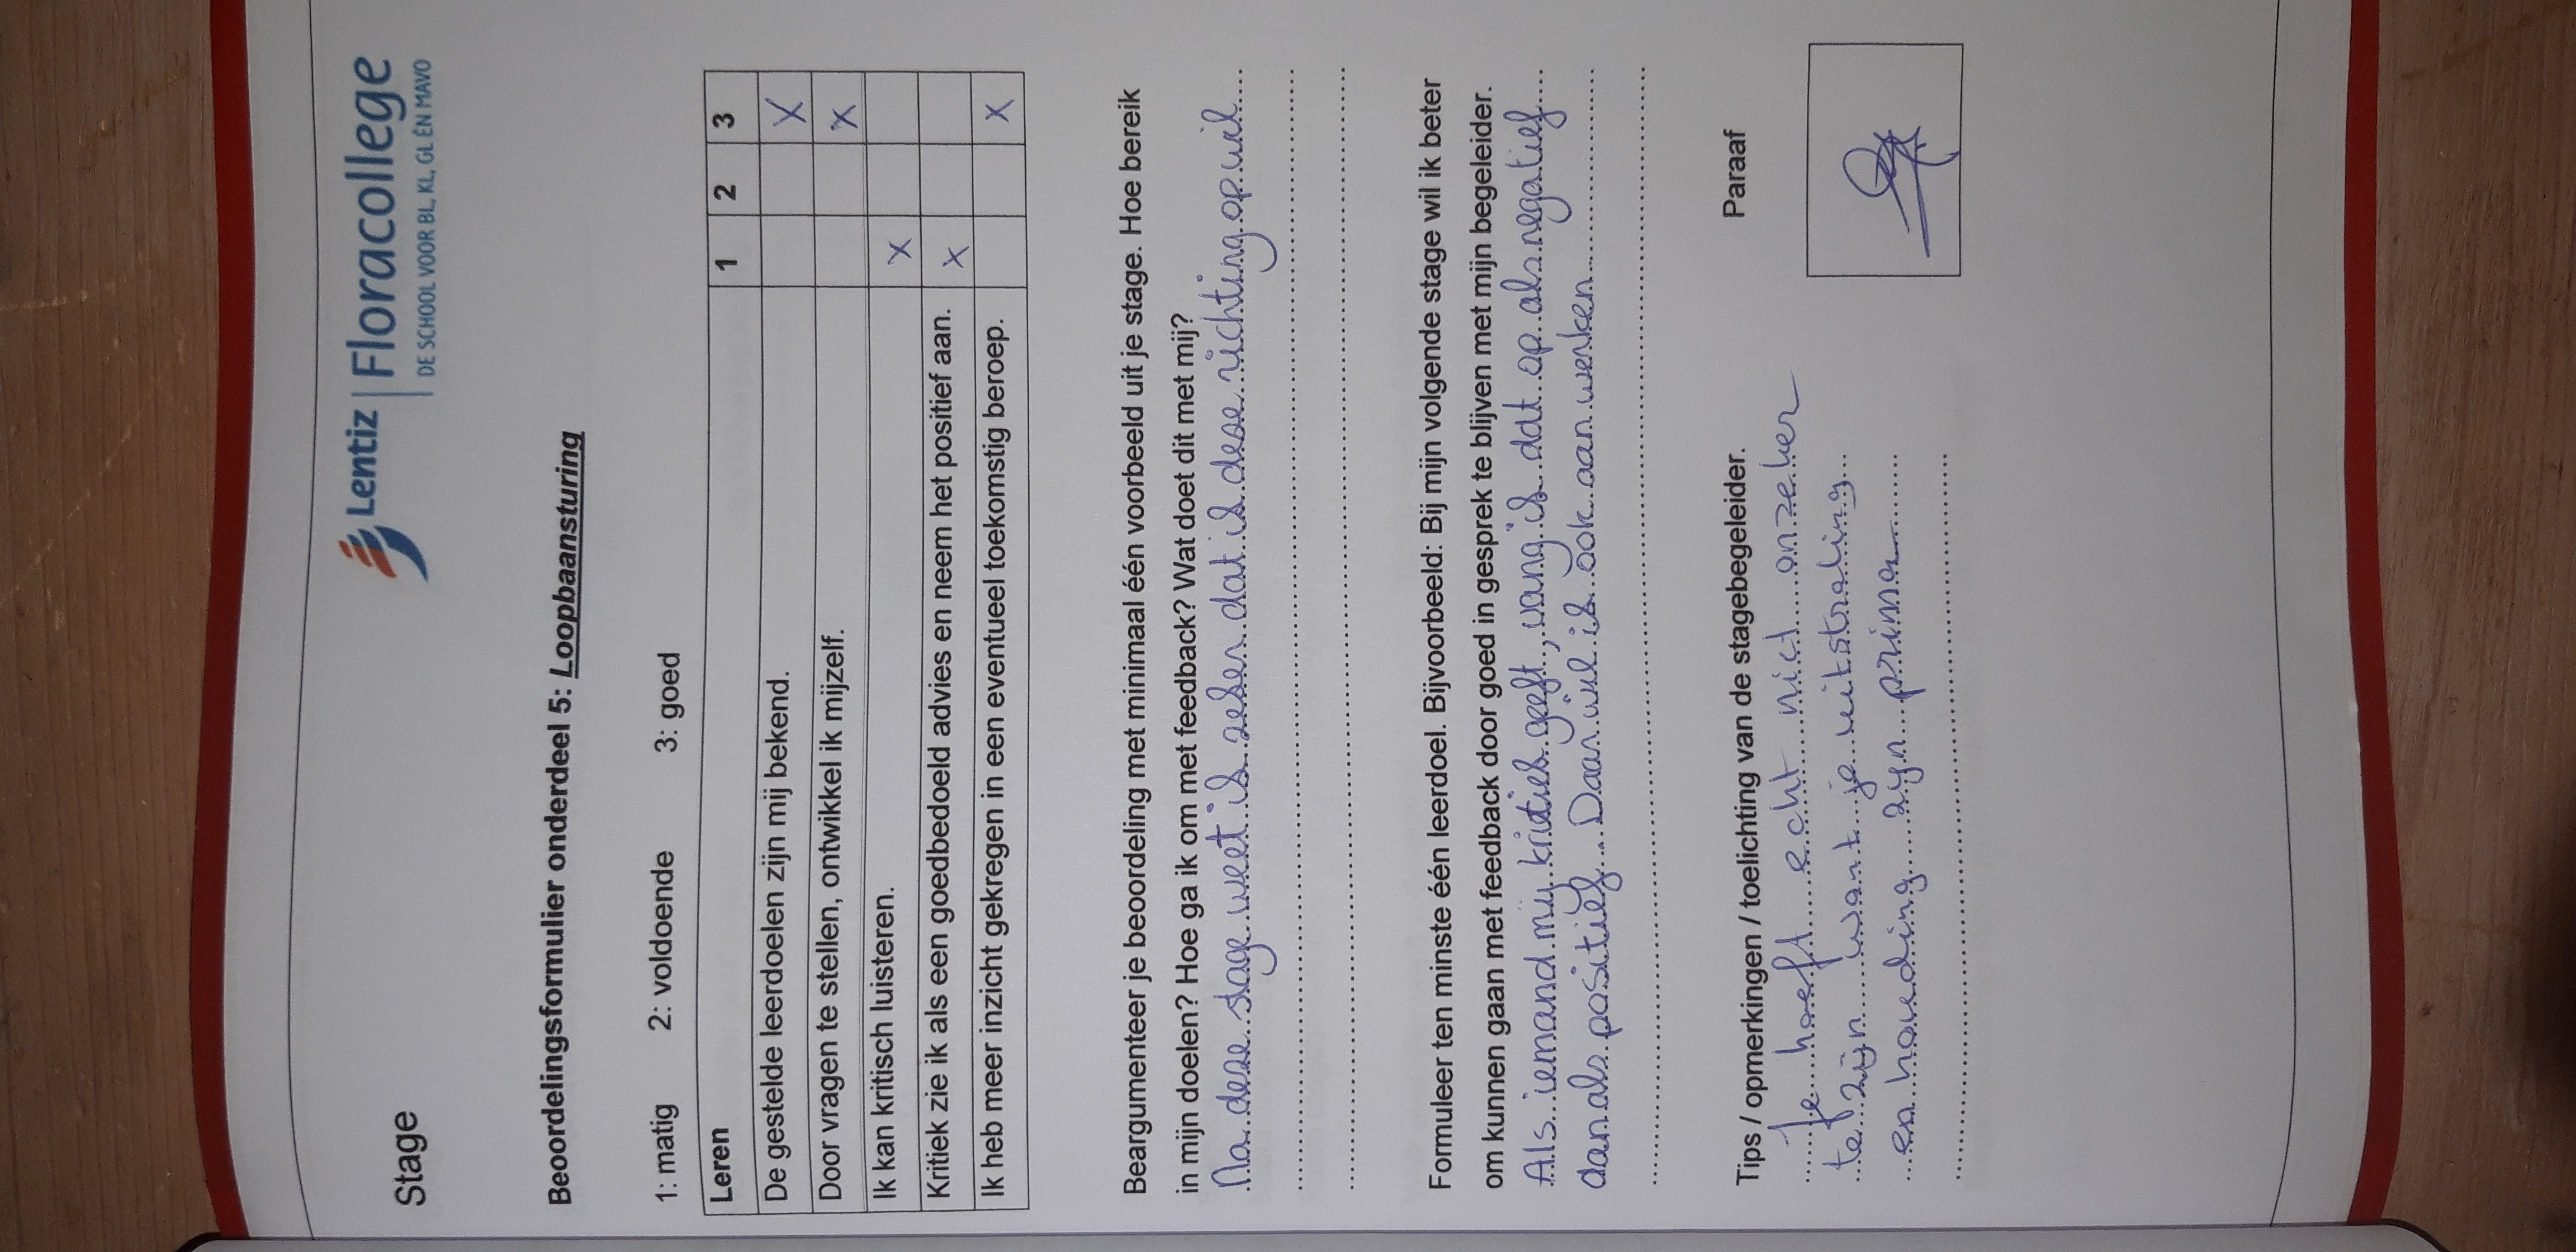 Stage
Lentiz | Floracollege
DE SCHOOL VOOR BL, KL, GL ÉN MAVO
Beoordelingsformulier onderdeel 5: Loopbaansturing
1: matig 2: voldoende 3: goed
Leren 1 2 3
De gestelde leerdoelen zijn mij bekend. X
Door vragen te stellen, ontwikkel ik mijzelf. X
Ik kan kritisch luisteren. X
Kritiek zie ik als een goedbedoeld advies en neem het positief aan. X
Ik heb meer inzicht gekregen in een eventueel toekomstig beroep. X
Beargumenteer je beoordeling met minimaal één voorbeeld uit je stage. Hoe bereik
in mijn doelen? Hoe ga ik om met feedback? Wat doet dit met mij?
Na deze stage weet ik zeker dat ik deze richting op wil
Formuleer ten minste één leerdoel. Bijvoorbeeld: Bij mijn volgende stage wil ik beter
om kunnen gaan met feedback door goed in gesprek te blijven met mijn begeleider.
Als iemand mij kritiek geeft, vang ik dat op als negatief
dan als positief. Daar wil ik ook aan werken
Tips / opmerkingen / toelichting van de stagebegeleider. Paraaf
Je hoeft echt niet onzeker
te zijn want je uitstraling
en houding zijn prima